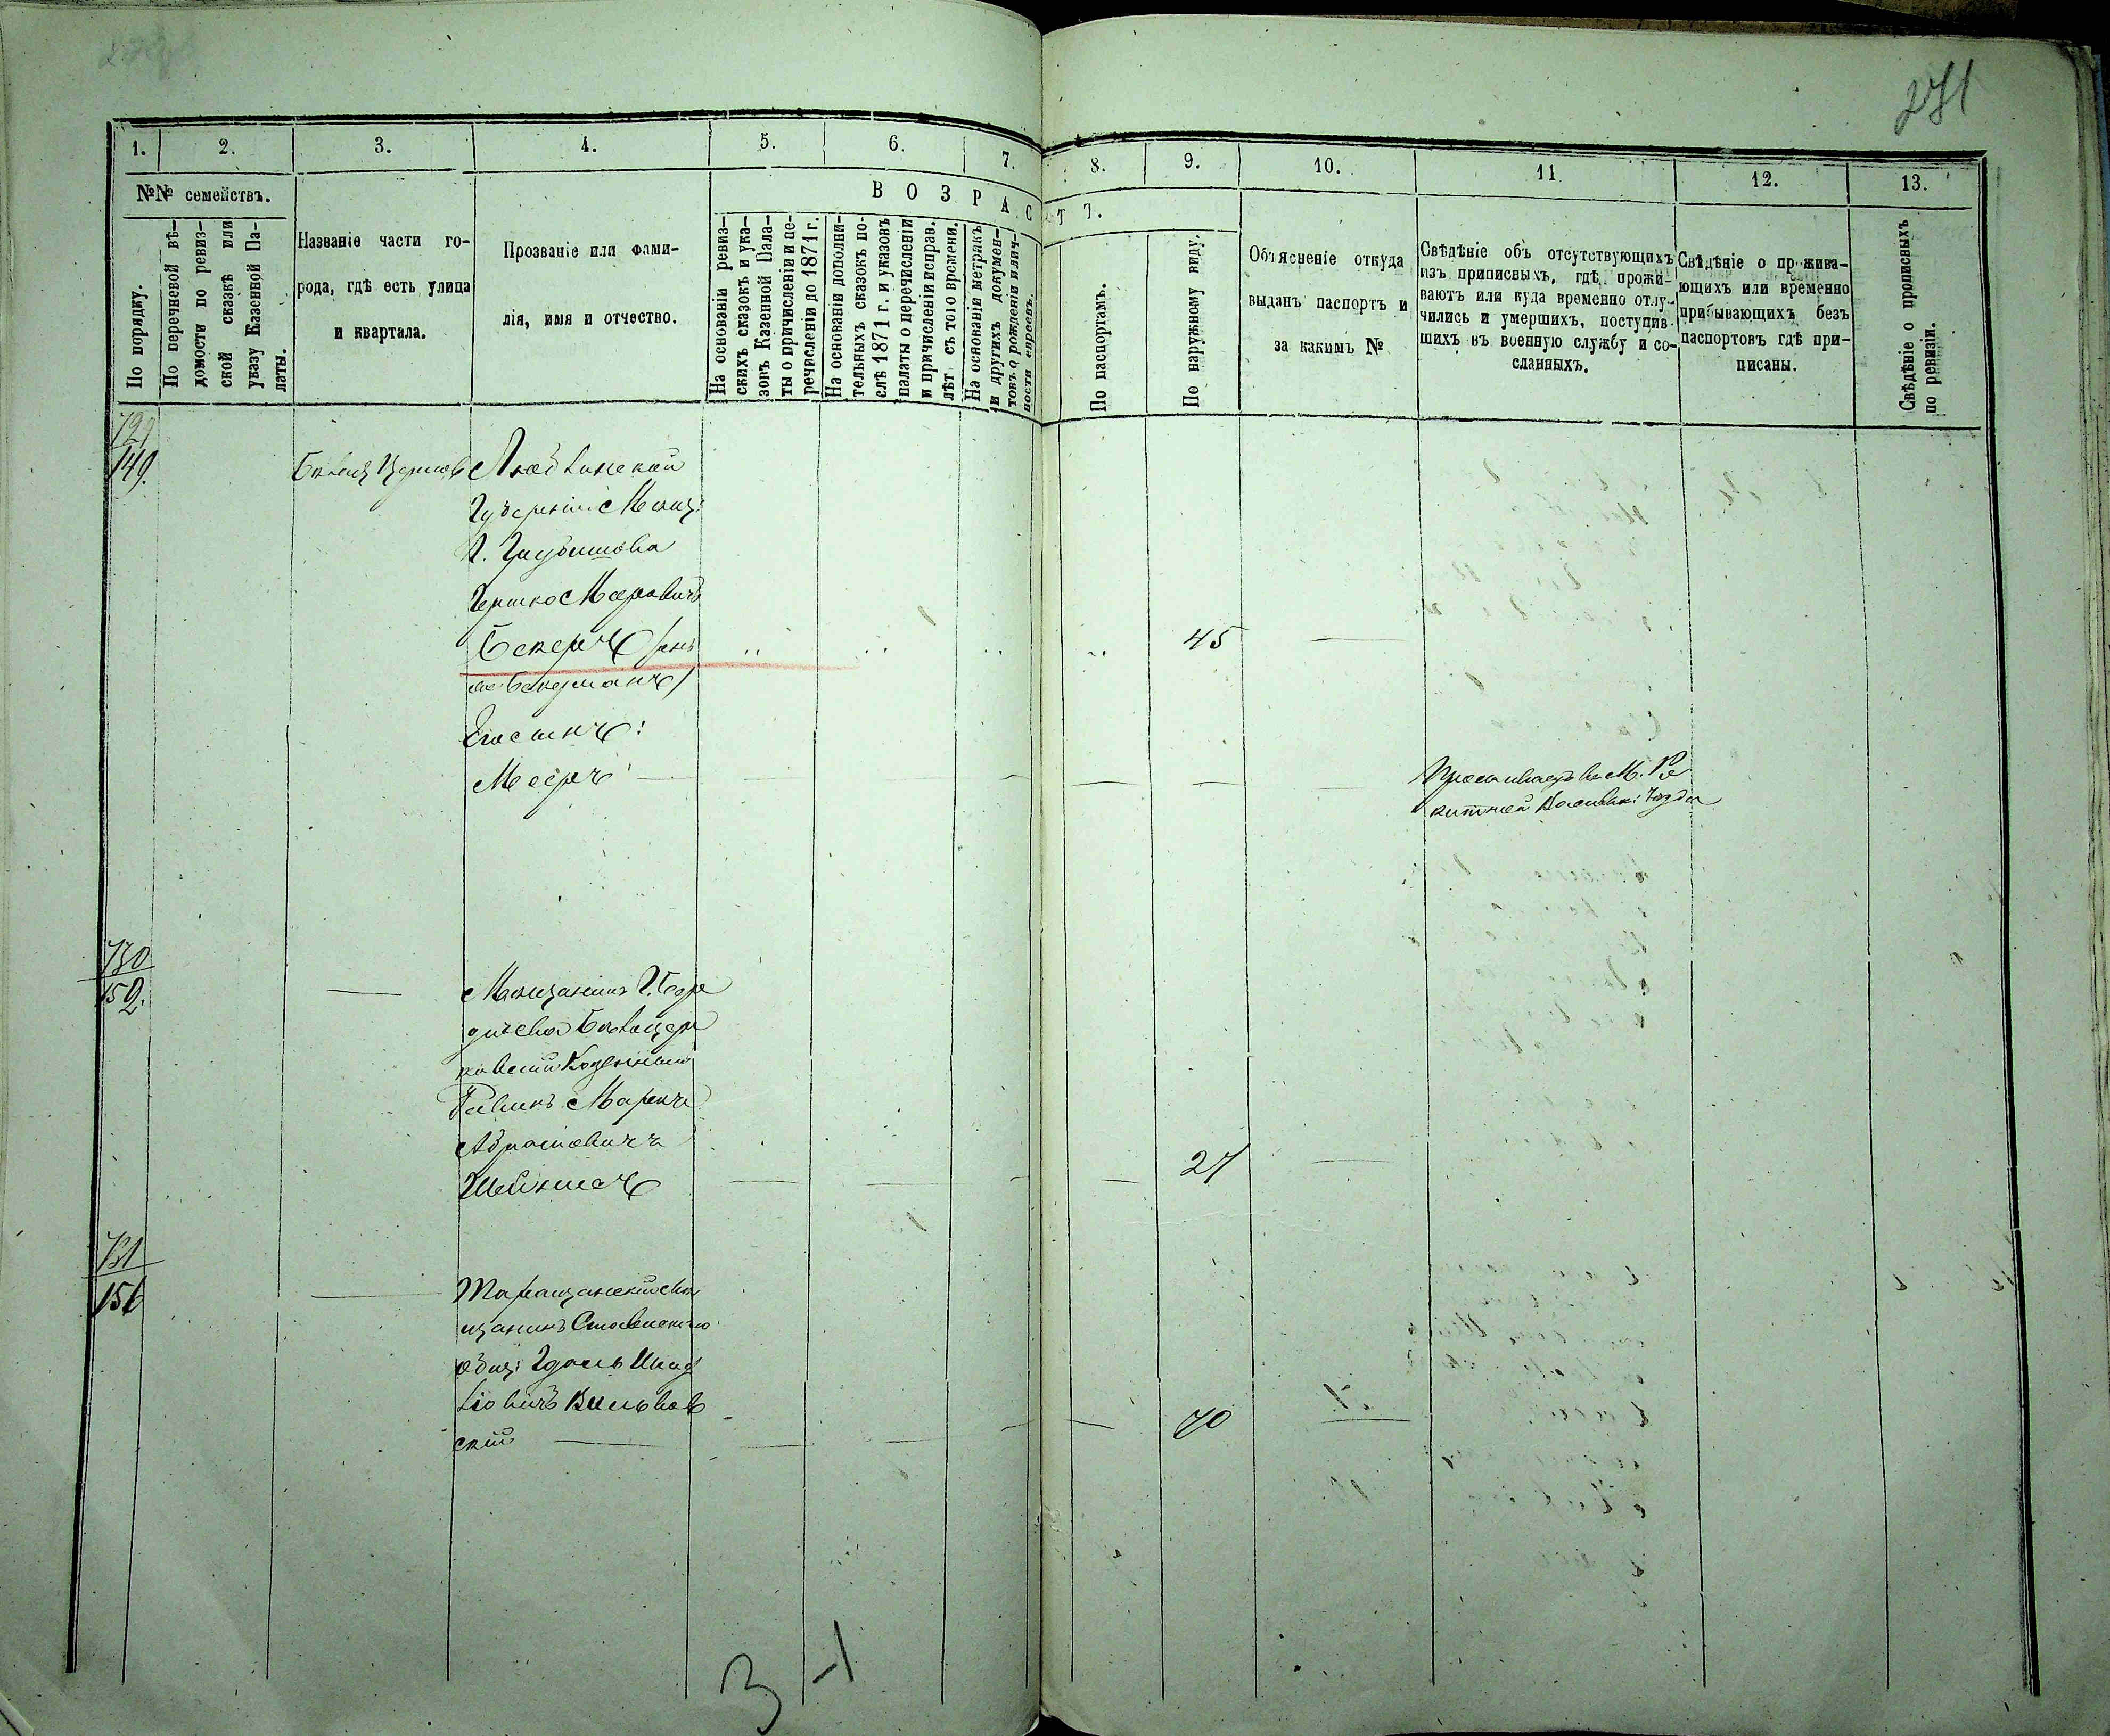 271
1. 2. 3. 4. 5. 6. 7. 8. 9. 10. 11. 12. 13.
№№ семействъ.
По порядку.
По перечневой вѣ-
домости по ревиз-
ской сказкѣ или
указу Казенной Па-
латы.
Названіе части го-
рода, гдѣ есть улица
и квартала.
Прозваніе или фами-
лія, имя и отчество.
ВОЗРАСТЪ.
На основаніи ревиз-
скихъ сказокъ и ука-
зовъ Казенной Пала-
ты о причисленіи и пе-
речисленіи до 1871 г.
На основаніи дополни-
тельныхъ сказокъ по-
слѣ 1871 г. и указовъ
палаты о перечисленіи
и причисленіи исправ.
лѣт съ того времени.
На основаніи метрикъ
и другихъ докумен-
товъ о рожденіи и лич-
ности евреевъ.
По паспортамъ.
По наружному виду.
Объясненіе откуда
выданъ паспортъ и
за какимъ №
Свѣдѣніе объ отсутствующихъ
изъ приписныхъ, гдѣ прожи-
ваютъ или куда временно отлу-
чились и умершихъ, поступив-
шихъ въ военную службу и со-
сланныхъ.
Свѣдѣніе о прожива-
ющихъ или временно
прибывающихъ безъ
паспортовъ гдѣ при-
писаны.
Свѣдѣніе о прописныхъ
по ревизіи.
729
149.
Люблинской
Губерніи Мѣщ:
Г. Грубешова
Гершко Мееровичъ
Бекеръ (онъ 45
же Бекерманъ)
Мееръ
730
152.
Мѣщанинъ Г. Бер
дичева Бѣлоцер
ковскій Казенный
Равинъ
Абрамовичъ 27
731
156
Таращанскій мѣ
щанинъ Ставискаго
общ:
70
скій
3 -1